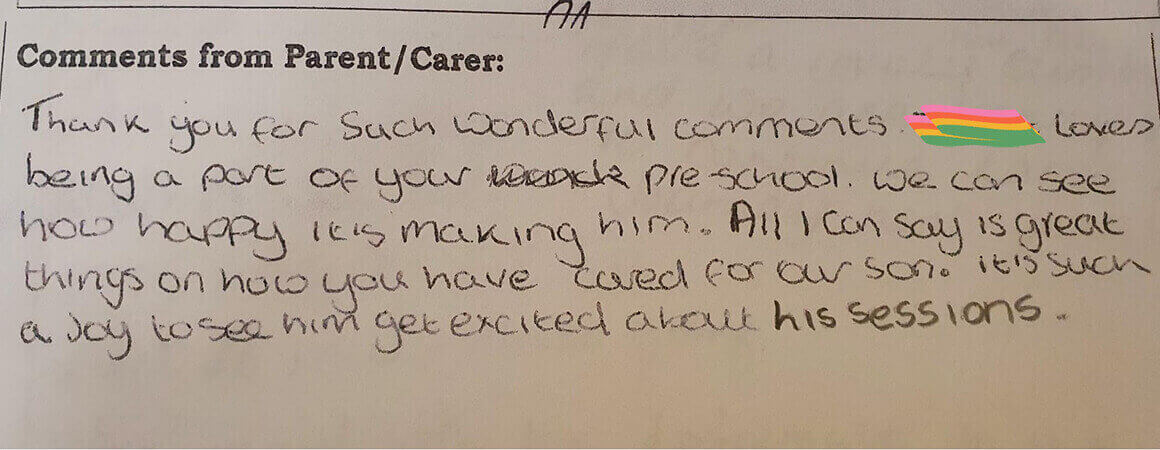 AA
Comments from Parent/Carer:
Thank you for Such wonderful comments. Loves
being a part of your pre school. we can see
how happy it is making him. All I can say is great
things on how you have cared for our son. it's such
a Joy to see him get excited about his sessions.